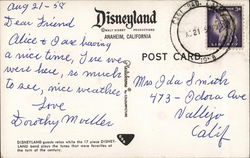 Aug 21-58
Dear Friend
Alice & I are having
a nice time, I've
were here, so much
to see, nice weather
Love
Dorothy Moeller
DISNEYLAND guests relax while the 17 piece DISNEY-
LAND band plays the tunes that were favorites at
the turn of the century.
Disneyland
© WALT DISNEY PRODUCTIONS
ANAHEIM, CALIFORNIA
POST CARD
Mrs Ida Smith
473 - Odora Ave
Vallejo
Calif